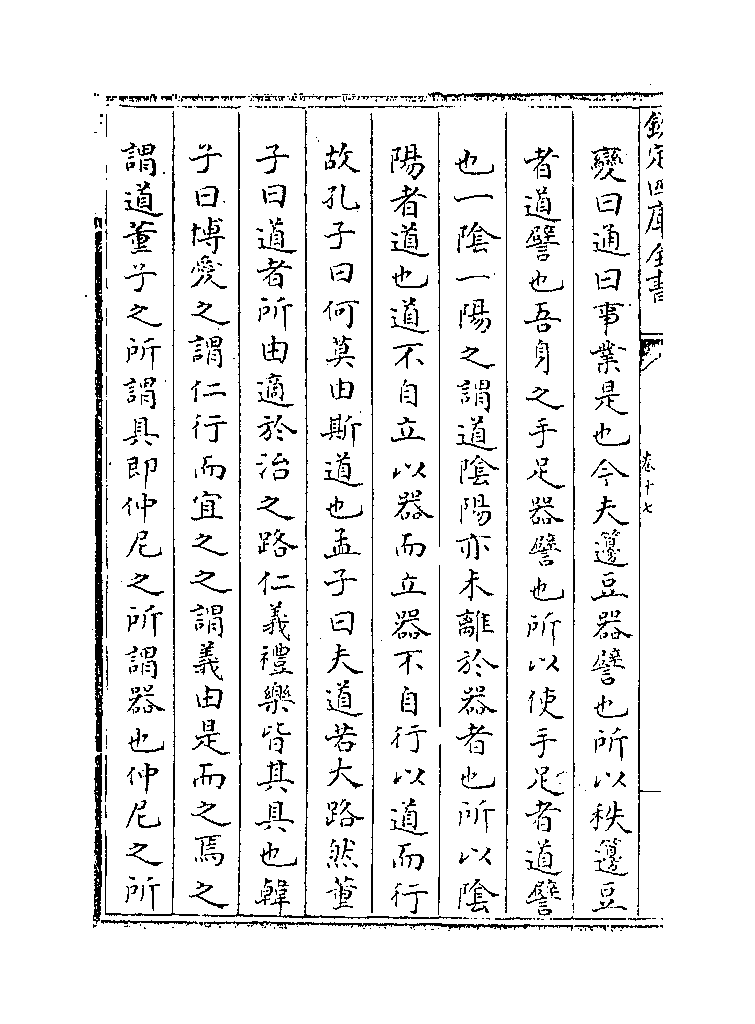 欽定四庫全書
卷十七
變曰通曰事業是也今夫籩豆器譬也所以秩籩豆
者道譬也吾身之手足器譬也所以使手足者道譬
也一陰一陽之謂道陰陽亦未離於器者也所以陰
陽者道也道不自立以器而立器不自行以道而行
故孔子曰何莫由斯道也孟子曰夫道若大路然董
子曰道者所由適於治之路仁義禮樂皆其具也韓
子曰博愛之謂仁行而宜之之謂義由是而之焉之
謂道董子之所謂具即仲尼之所謂器也仲尼之所